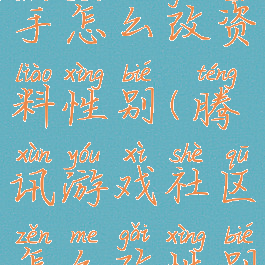 手怎么改资
liào xìng bié téng
料性别(腾
xùn yóu xì shè qū
讯游戏社区
zěn me gǎi xìng bié
怎么改性别